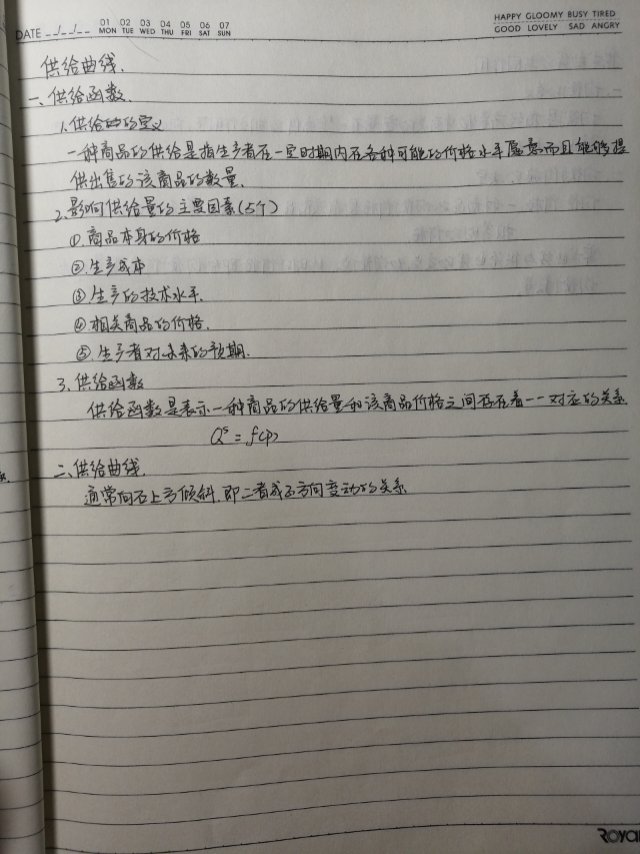 HAPPY GLOOMY BUSY TIRED
GOOD LOVELY SAD ANGRY
DATE __/__/__
01 02 03 04 05 06 07
MON TUE WED THU FRI SAT SUN
供给曲线.
一、供给函数.
1.供给的定义
一种商品的供给是指生产者在一定时期内在各种可能的价格水平愿意而且能够提
供出售的该商品的数量.
2.影响供给量的主要因素(5个)
①商品本身的价格
②生产成本
③生产的技术水平.
④相关商品的价格.
⑤生产者对未来的预期.
3.供给函数
供给函数是表示一种商品的供给量和该商品价格之间存在着一一对应的关系.
Qˢ=f(p)
二.供给曲线.
通常向右上方倾斜.即二者成正方向变动的关系